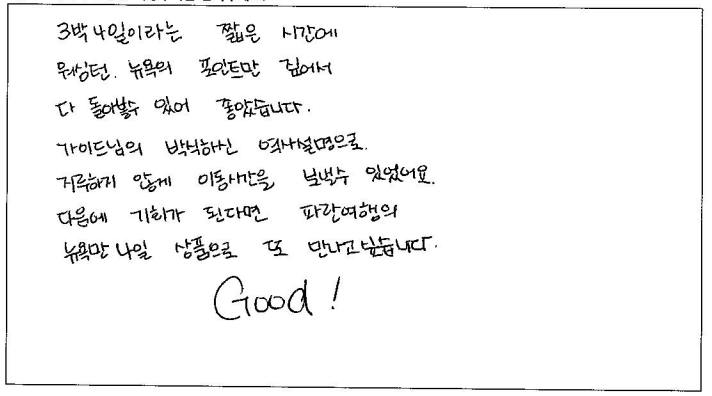 3박4일이라는 짧은 시간에
워싱턴. 뉴욕의 포인트만 집어서
다 돌아볼수 있어 좋았습니다.
가이드님의 박식하신 역사설명으로.
지루하지 않게 이동시간을 보낼수 있었어요.
다음에 기회가 된다면 파란여행의
뉴욕만 4일 상품으로 또 만나고싶습니다.
Good !